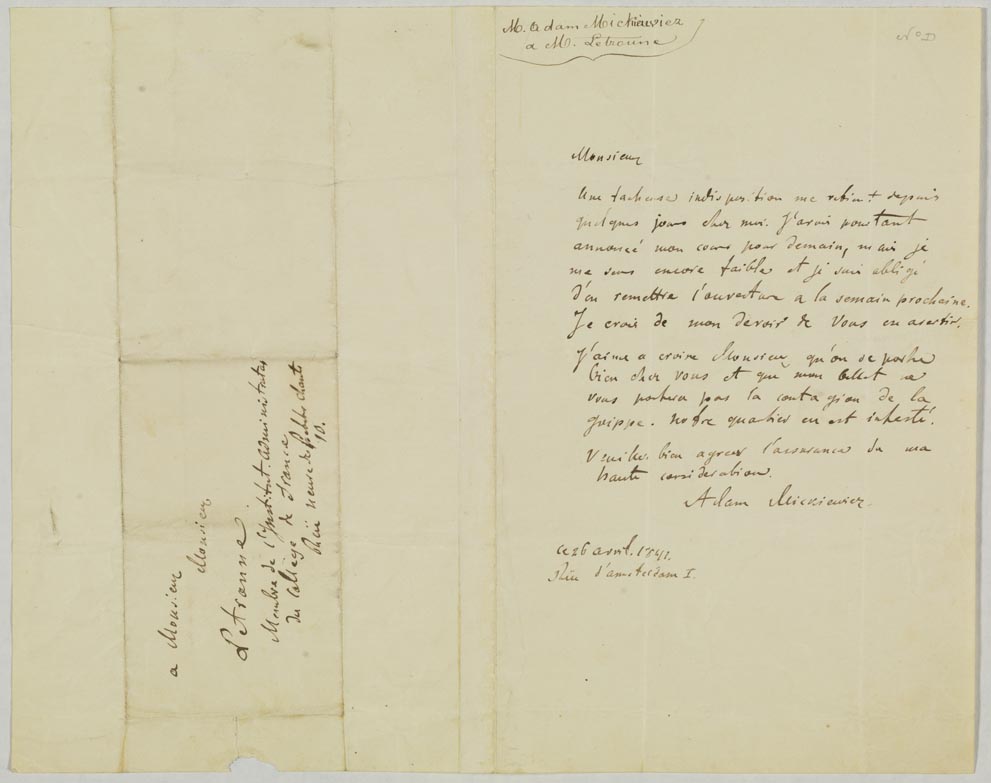 M. Adam Mickiewicz
a M. Letronne
N° D
Monsieur
Une facheuse indisposition me retient depuis
quelques jours chez moi. J'avais pourtant
annoncé mon cours pour demain, mais je
me sens encore faible et je suis obligé
d'en remettre l'ouverture a la semain prochaine.
Je crois de mon devoir de Vous en avertir.
J'aime a croire Monsieur, qu'on se porte
bien chez vous et que mon billet ne
vous portera pas la contagion de la
grippe. Notre quartier en est infesté.
Veuillez bien agreer l'assurance de ma
haute consideration.
Adam Mickiewicz.
ce 26 avril. 1841.
Rue d'amsterdam 1.
a Monsieur
Monsieur
Letronne
Membre de l'Institut. administrateur
du Collège de France
Rue neuve des petits champs
10.